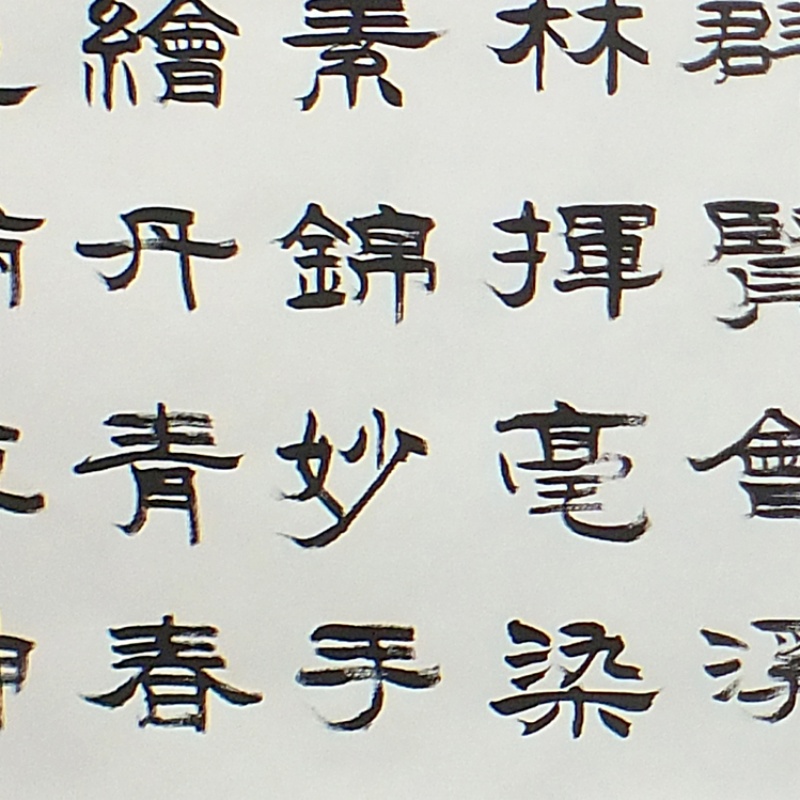 群賢會
林揮毫染
素錦妙手
繪丹青春